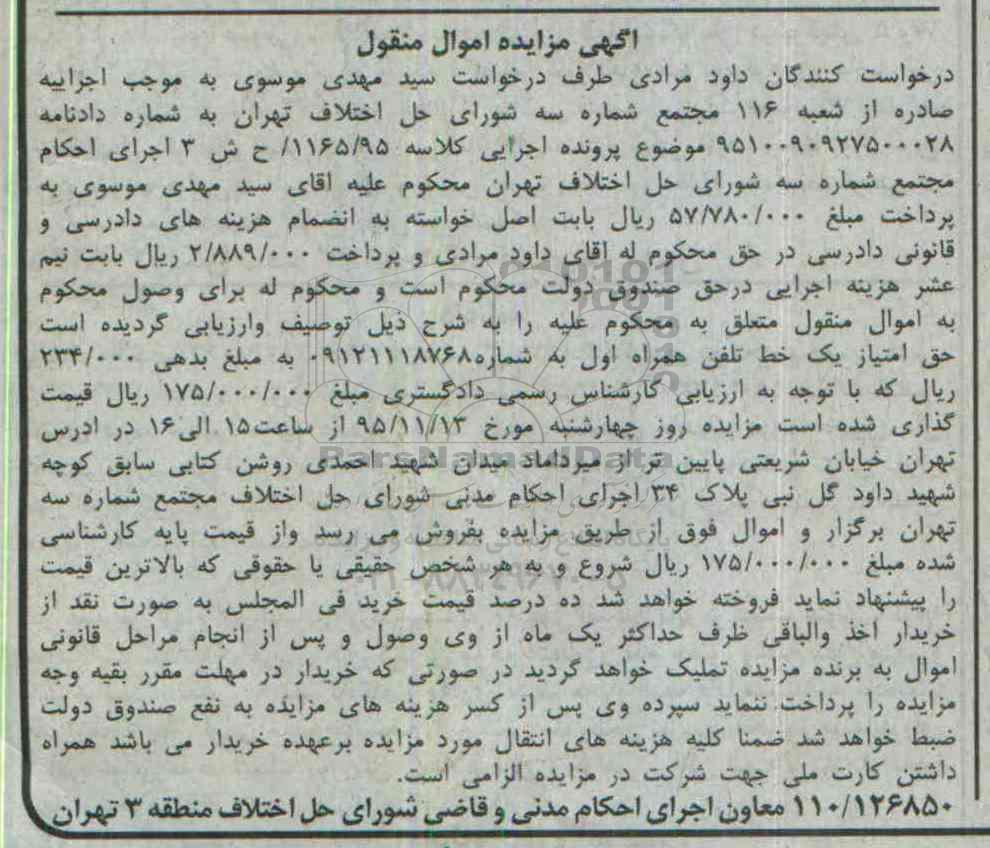 اگهی مزایده اموال منقول
درخواست کنندگان داود مرادی طرف درخواست سید مهدی موسوی به موجب اجراییه
صادره از شعبه ۱۱۶ مجتمع شماره سه شورای حل اختلاف تهران به شماره دادنامه
۹۵۱۰۰۹۰۹۲۷۵۰۰۰۰۲۸ موضوع پرونده اجرایی کلاسه ۱۱۶۵/۹۵/ ح ش ۳ اجرای احکام
مجتمع شماره سه شورای حل اختلاف تهران محکوم علیه اقای سید مهدی موسوی به
پرداخت مبلغ ۵۷/۷۸۰/۰۰۰ ریال بابت اصل خواسته به انضمام هزینه های دادرسی و
قانونی دادرسی در حق محکوم له اقای داود مرادی و پرداخت ۲/۸۸۹/۰۰۰ ریال بابت نیم
عشر هزینه اجرایی درحق صندوق دولت محکوم است و محکوم له برای وصول محکوم
به اموال منقول متعلق به محکوم علیه را به شرح ذیل توصیف وارزیابی گردیده است
حق امتیاز یک خط تلفن همراه اول به شماره۰۹۱۲۱۱۱۸۷۶۸ به مبلغ بدهی ۲۳۴/۰۰۰
ریال که با توجه به ارزیابی کارشناس رسمی دادگستری مبلغ ۱۷۵/۰۰۰/۰۰۰ ریال قیمت
گذاری شده است مزایده روز چهارشنبه مورخ ۹۵/۱۱/۱۳ از ساعت۱۵ الی۱۶ در ادرس
تهران خیابان شریعتی پایین تر از میرداماد میدان شهید احمدی روشن کتابی سابق کوچه
شهید داود گل نبی پلاک ۳۴ اجرای احکام مدنی شورای حل اختلاف مجتمع شماره سه
تهران برگزار و اموال فوق از طریق مزایده بفروش می رسد واز قیمت پایه کارشناسی
شده مبلغ ۱۷۵/۰۰۰/۰۰۰ ریال شروع و به هر شخص حقیقی یا حقوقی که بالاترین قیمت
را پیشنهاد نماید فروخته خواهد شد ده درصد قیمت خرید فی المجلس به صورت نقد از
خریدار اخذ والباقی ظرف حداکثر یک ماه از وی وصول و پس از انجام مراحل قانونی
اموال به برنده مزایده تملیک خواهد گردید در صورتی که خریدار در مهلت مقرر بقیه وجه
مزایده را پرداخت ننماید سپرده وی پس از کسر هزینه های مزایده به نفع صندوق دولت
ضبط خواهد شد ضمنا کلیه هزینه های انتقال مورد مزایده برعهده خریدار می باشد همراه
داشتن کارت ملی جهت شرکت در مزایده الزامی است.
۱۱۰/۱۲۶۸۵۰ معاون اجرای احکام مدنی و قاضی شورای حل اختلاف منطقه ۳ تهران
ParsNamadData